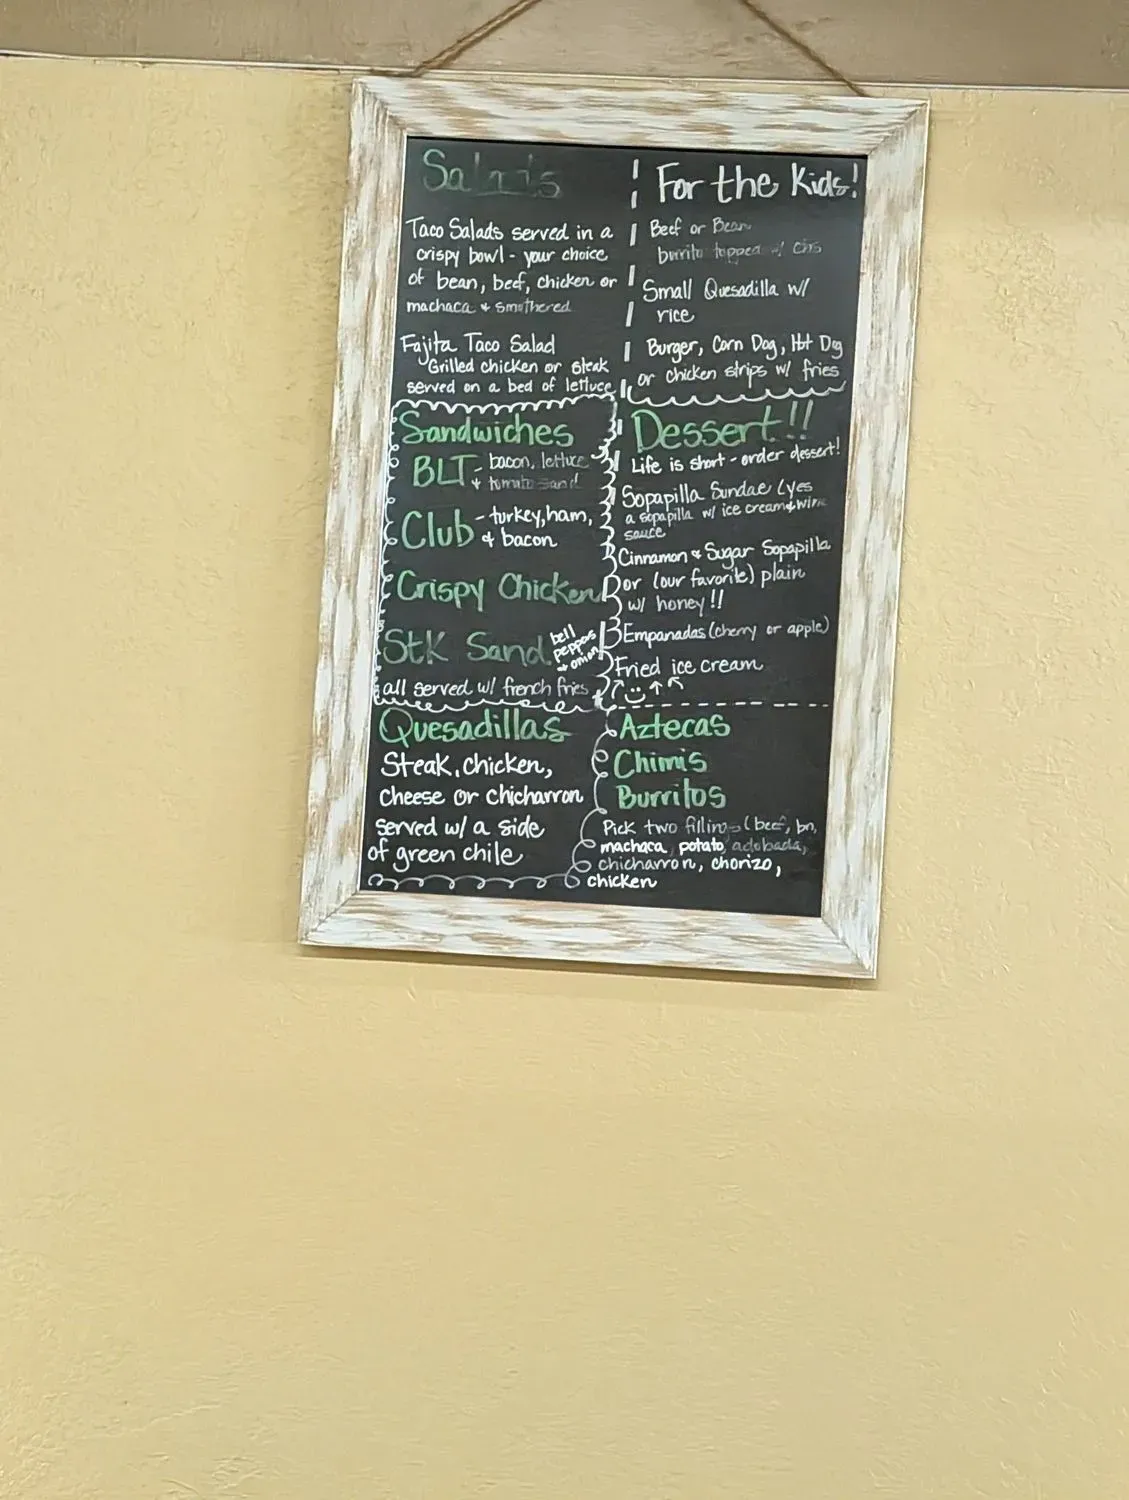 Salads
Taco Salads served in a
crispy bowl - your choice
of bean, beef, chicken or
machaca & smothered
Fajita Taco Salad
Grilled chicken or steak
served on a bed of lettuce
For the Kids!
Beef or Bean
burrito topped w/ chs
Small Quesadilla w/
rice
Burger, Corn Dog, Hot Dog
or chicken strips w/ fries
Sandwiches
BLT - bacon, lettuce
& tomato sand
Club - turkey, ham,
& bacon
Crispy Chicken
Stk Sand bell
peppers
& onion
all served w/ french fries
Dessert!!
Life is short - order dessert!
Sopapilla Sundae (yes
a sopapilla w/ ice cream & wine
sauce
Cinnamon & Sugar Sopapilla
or (our favorite) plain
w/ honey!!
Empanadas (cherry or apple)
Fried ice cream
Quesadillas
Steak, chicken,
cheese or chicharron
served w/ a side
of green chile
Aztecas
Chimis
Burritos
Pick two fillings (beef, bn,
machaca, potato, adobada,
chicharron, chorizo,
chicken